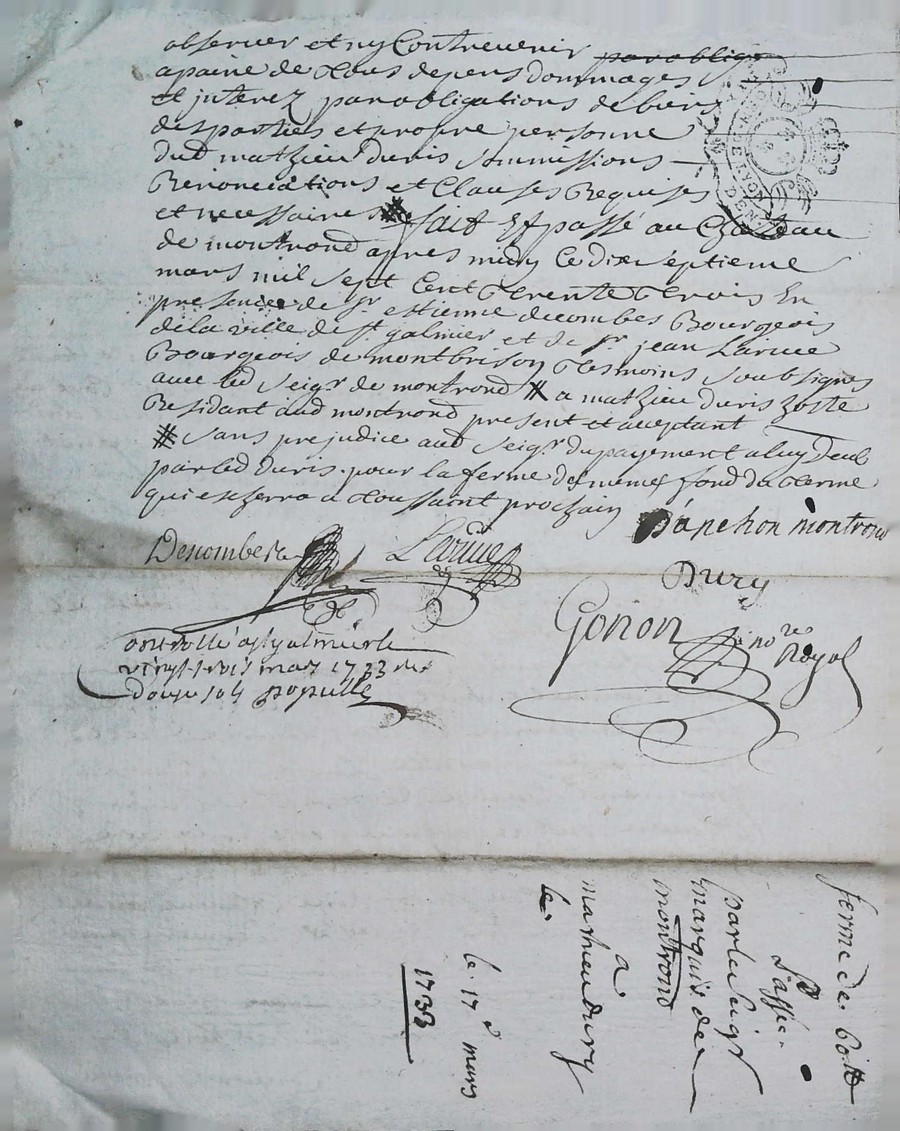 observer et ny Contrevenir par oblige
a paine de tous depens dommages
et jnterez par obligations de biens
des parties et propre personne
dud mathieu duris sommissions
Renonciations et Clauses Requises
et necessaires # fait Et passé au Chateau
de montrond apres midy Ce dix septieme
mars mil sept Cent trente trois En
presence de sr. estienne decombes Bourgeois
de la ville de st galmier et de sr. jean Larue
Bourgeois de montbrison tesmoins soubsignes
avec led seigr de montrond # a mathieu duris
Residant aud montrond present et aceptant
# sans prejudice aud seigr du payement a luy deub
par led duris pour la ferme de meme fond du terme
qui escherra a toussaint prochain
D'apchon montrond
Decombes Larue
Dury
Gonon no.re Royal
controllé a st galmier le
vingt trois mars 1733 
douze sols populle
ferme de 60 #
passée
par le seigr
marquis de
montrond
a
mathieu dury
le.
le 17e mars
1733